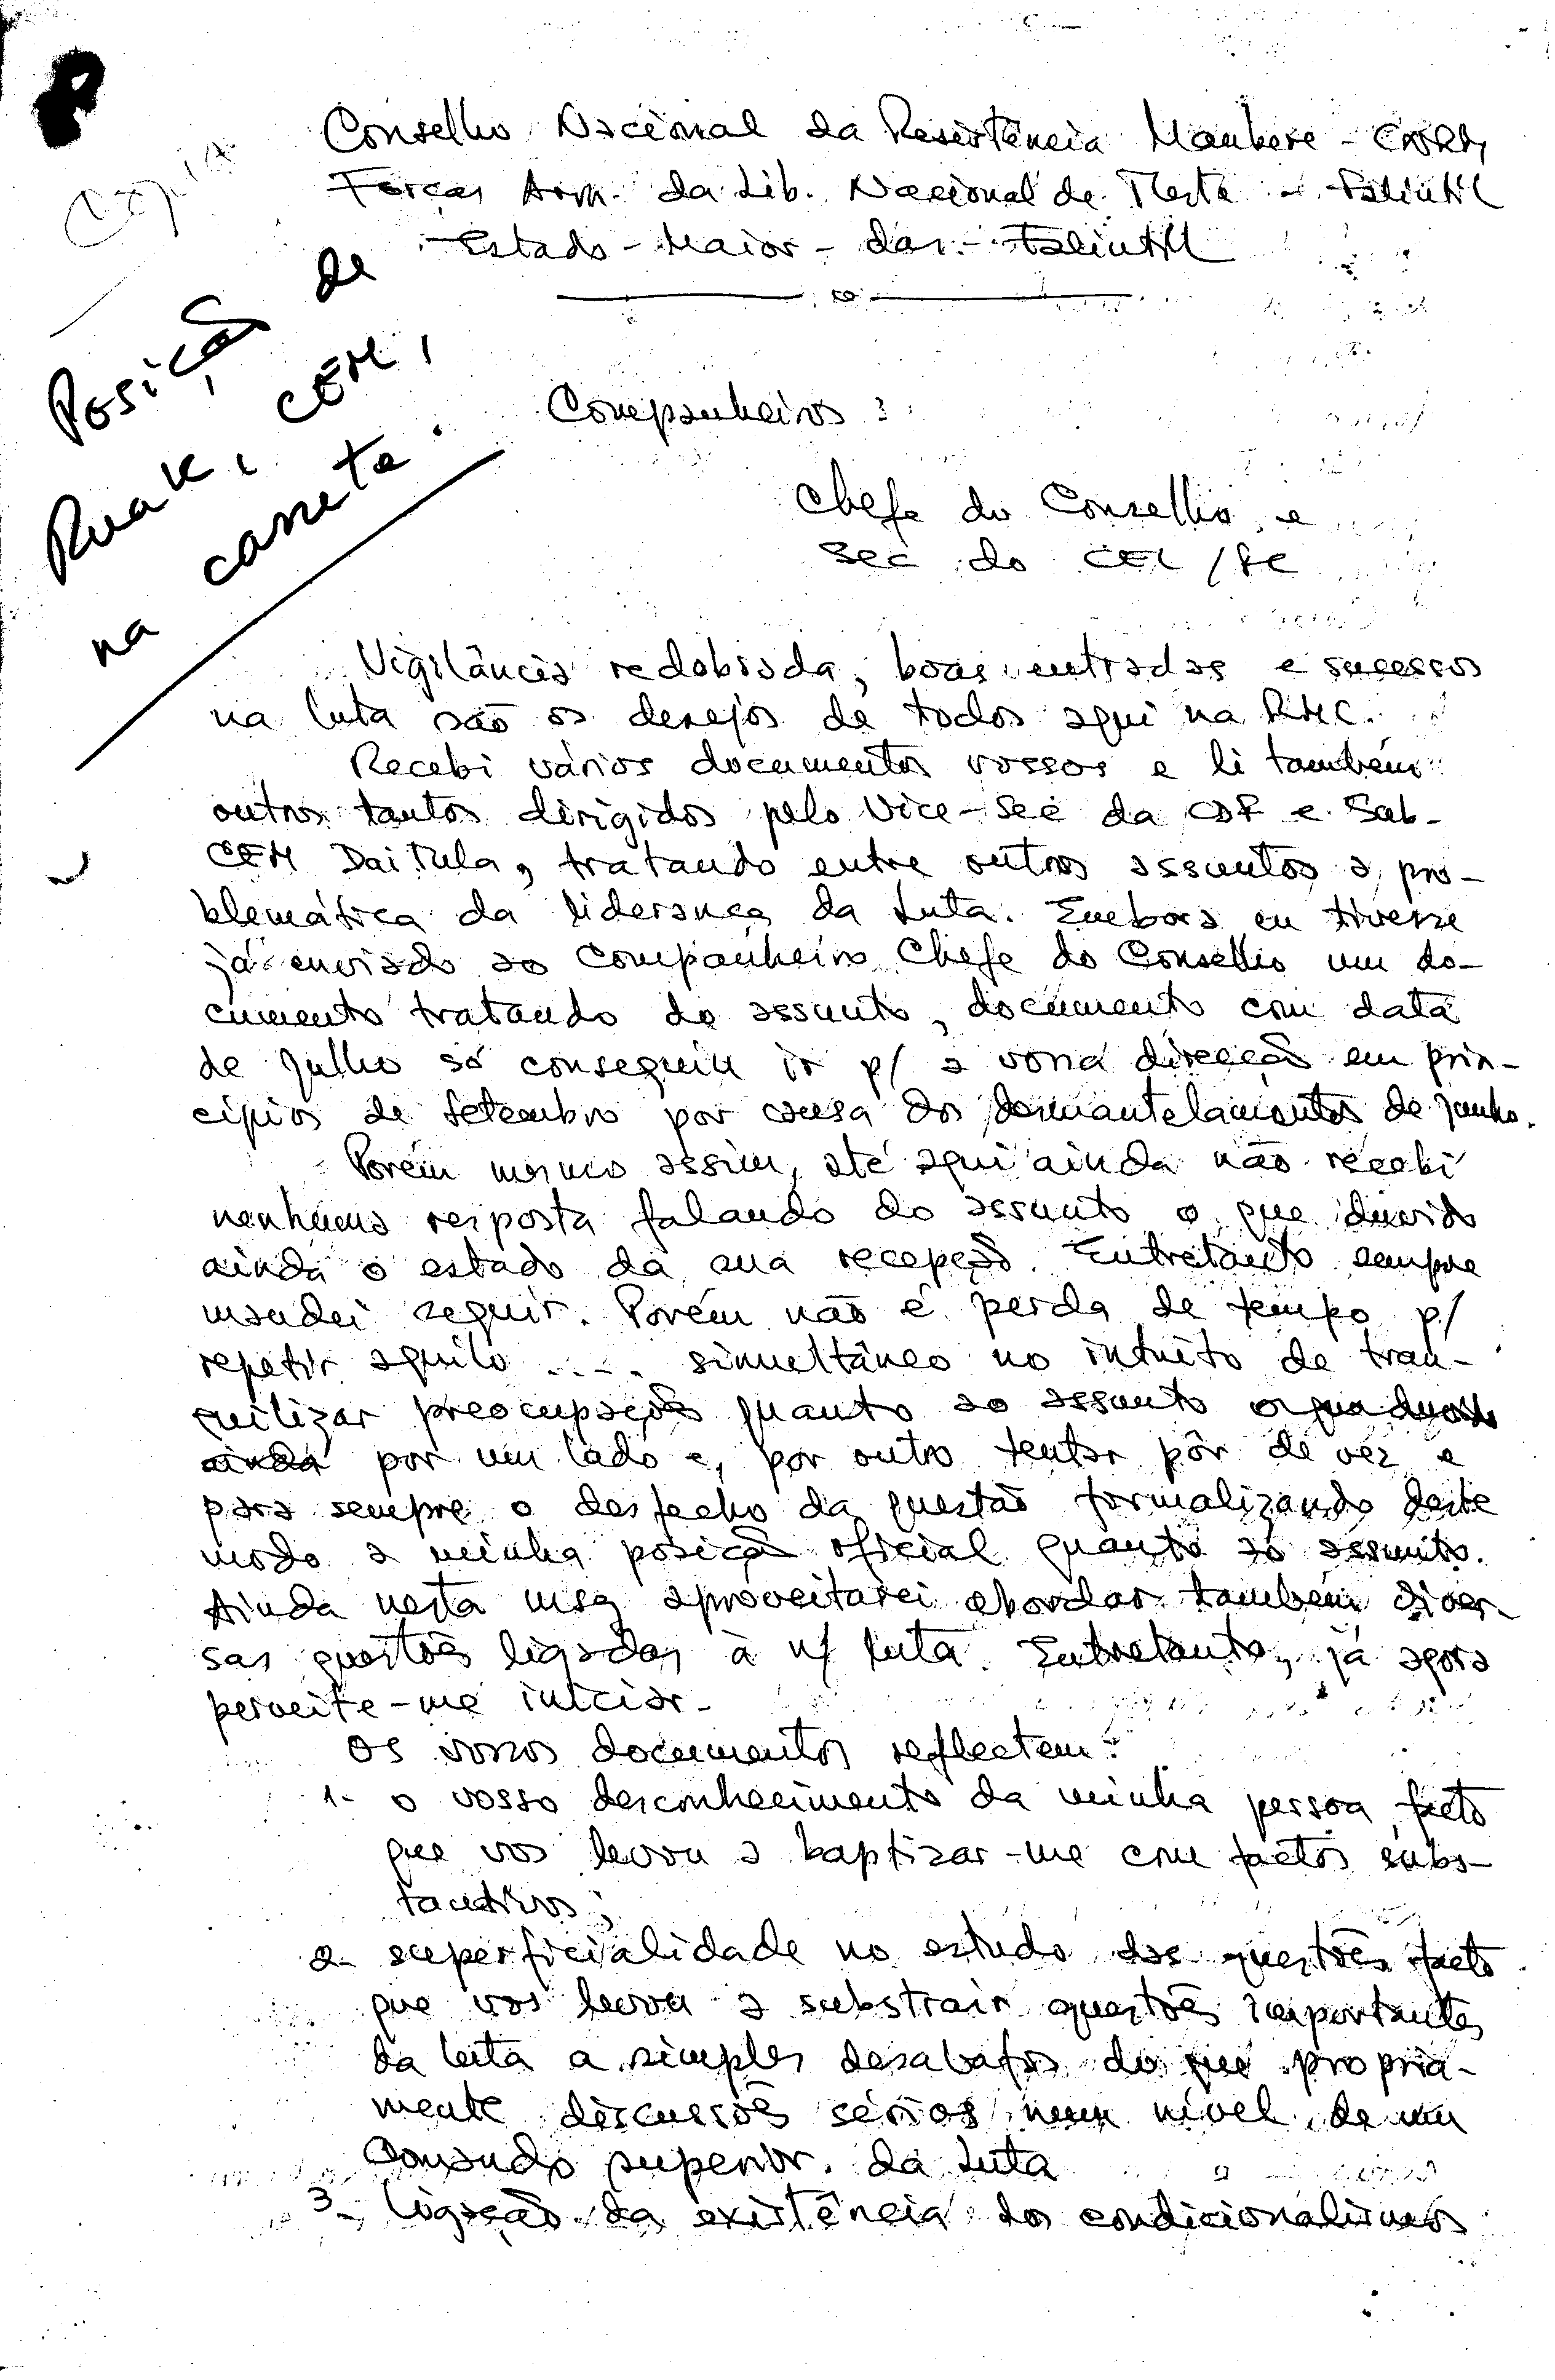 Conselho Nacional da Resistência Maubere - CNRM,
Forças Arm. da Lib. Nacional de T. Leste - Falintil
Estado - Maior - das - Falintil
Cópia
Posição de
Ruak, CEM,
na carreta.
Companheiros:
Chefe do Conselho, e
Sec do CEL/FC
Vigilância redobrada, boas entradas e sucessos
na luta são os desejos de todos aqui na RMC.
Recebi vários documentos vossos e li também
outros tantos dirigidos pelo Vice-Sec da CDF e Sub-
CEM Dai Tula, tratando entre outros assuntos a pro-
blemática da liderança da Luta. Embora eu tivesse
já enviado ao Companheiro Chefe do Conselho um do-
cumento tratando do assunto, documento com data
de Julho só conseguiu ir p/ a vossa direcção em prin-
cípios de Setembro por causa dos desmantelamentos de Junho.
Porém mesmo assim, até aqui ainda não recebi
nenhuma resposta falando do assunto o que duvido
ainda o estado da sua recepção. Entretanto sempre
mandei seguir. Porém não é perda de tempo p/
repetir aquilo .... simultâneo no intuito de tran-
quilizar preocupações quanto ao assunto o que duvido
ainda por um lado e, por outro tentar pôr de vez e
para sempre o desfecho da questão formalizando deste
modo a minha posição oficial quanto ao assunto.
Ainda nesta msg aproveitarei abordar também diver-
sas questões ligadas à n/ luta. Entretanto, já agora
permite-me iniciar.
Os vossos documentos reflectem:
1- o vosso desconhecimento da minha pessoa, facto
que vos levou a baptizar-me com factos subs-
tantivos;
2- superficialidade no estudo das questões facto
que vos levou a substrair questões importantes
da luta a simples desabafos do que propria-
mente discussões sérias num nível de um
Comando superior da Luta
3- Ligação da existência dos condicionalismos